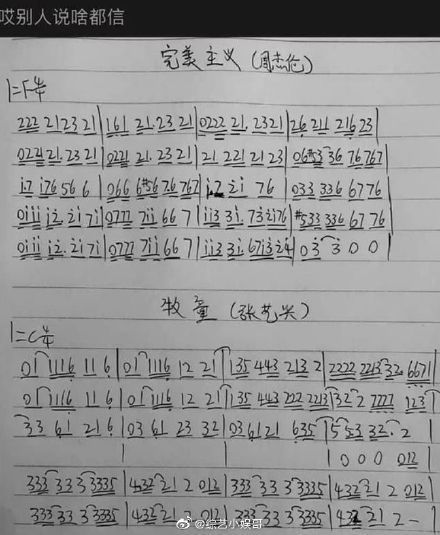 哎别人说啥都信
完美主义 (周杰伦)
1=F 4/4
222 21 23 21 | 161 21.23 21 | 0222 21. 2321 | 26 211 216 23 |
0221 21.23 21 | 0221 21.23 21 | 21. 221 21 23 | 06#53 36 76 767 |
i.7 i76 56 6 | 066 6#56 76 767 | i.2 2i 76 | 033 336 6776 |
0iii i2. 2i 7i | 0777 7ii 66 7 | ii3 31. 73 2i76 | #533 336 67 76 |
0iii i2. 2i 7i | 0777 7ii 66 7 | ii3 31. 67i3 24 | 03 3 0 0 |
牧童 (张艺兴)
1=C 4/4
01 1116 11 6 | 01 1116 12 21 | 135 443 213 2 | 2222 2213 32. 6671 |
01 1116 11 6 | 01 1116 12 21 | 135 443 222 2213 | 32 2 7777 123 |
33 61 21 6 | 03 61 23 32 | 03 61 21 635 | 5 53 32. 2 |
| | | 0 0 0 012 |
333 33 3 3335 | 432 21 2 012 | 333 33 3 3335 | 432 21 2 012 |
333 33 3 3335 | 432 21 2 012 | 333 33 3 3335 | 432 21 2 - |
@综艺小娱哥